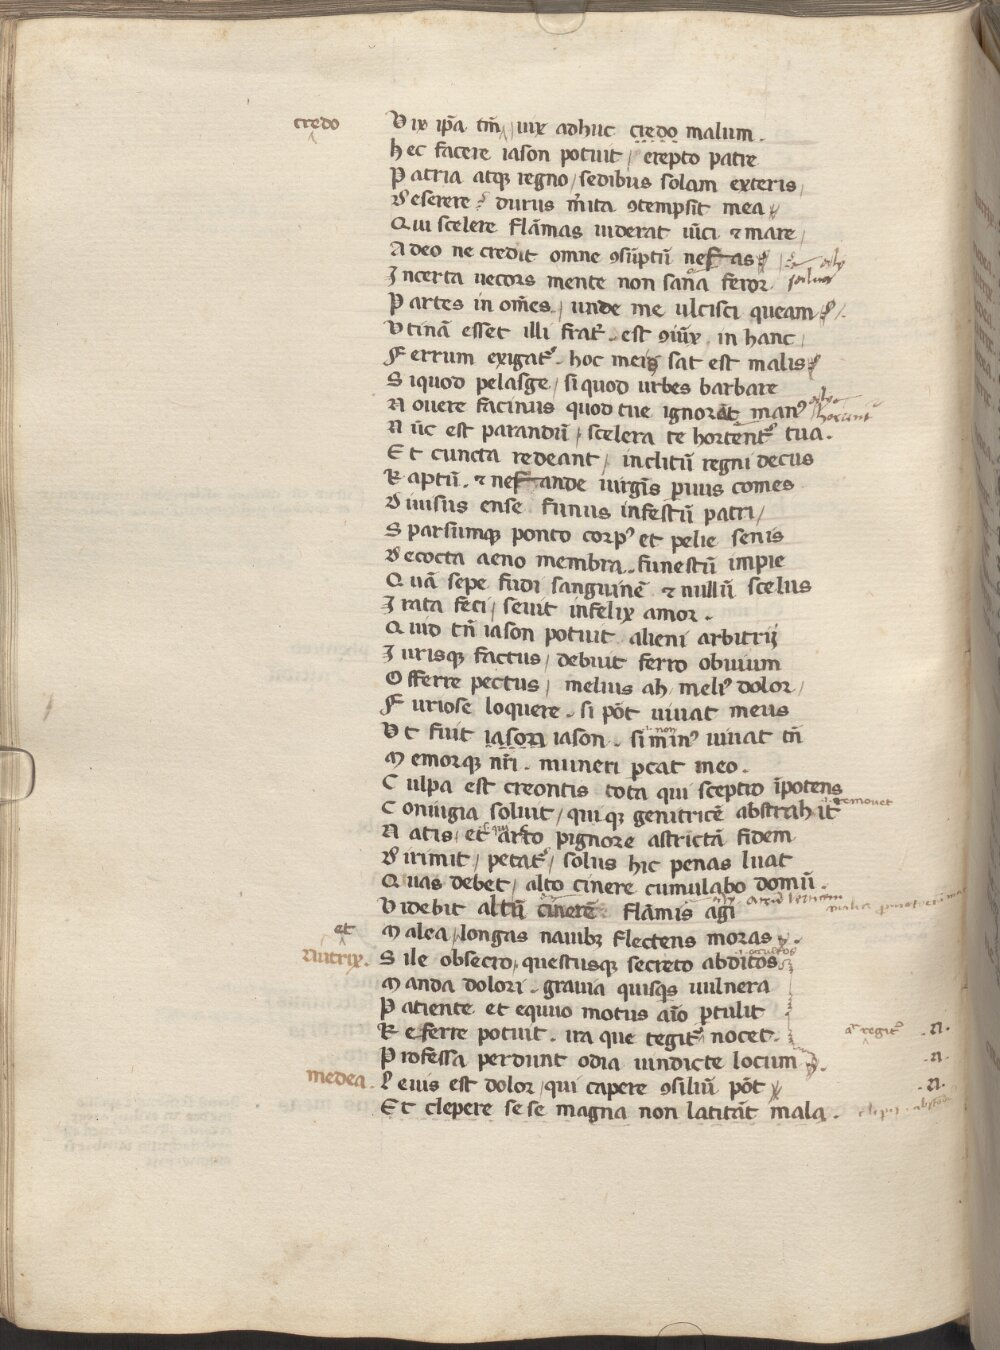 credo
Vix ip̄a tm̄ / uix adhuc credo malum .
hec facere iason potuit / erepto patre
Patria atq; regno / sedibus solam exteris /
deserere ? durus m̄ita ꝯtempsit mea
Qui scelere flāmas uiderat uīci ⁊ mare /
Adeo ne credit omne ꝯsūptū nefas
Incerta uecors mente non sana feror
Partes in om̄es / unde me ulcisci queam
Vtinā esset illi frat̄ . est ꝯiūx . in hanc /
Ferrum exigat᷑ . hoc meis sat est malis
Siquod pelasge / siquod urbes barbare
Nouere facinus quod tue ignorāt manꝰ
Nūc est parandū / scelera te hortent᷑ tua .
Et cuncta redeant / inclitū regni decus
Raptū . ⁊ nefande uirgīs puus comes
Diuisus ense funus infestū patri /
Sparsumq; ponto corpꝰ et pelie senis
Decocta aeno membra . funestū impie
Quā sepe fudi sanguinē ⁊ nullū scelus
Irata feci / seuit infelix amor .
Quid tn̄ iason potuit alieni arbitrij
Iurisq; factus / debuit ferro obuium
Offerre pectus / melius ah / meliꝰ dolor /
Furiose loquere . si pōt uiuat meus
Vt fuit iason iason . si minꝰ uiuat tn̄
.i. non
Memorq; nr̄i . muneri ꝑcat meo .
Culpa est creontis tota qui sceptro īpotens
Coniugia soluit / qui q; genitricē abstrahit
.i. remouet
Natis / et arto pignore astrictā fidem
qui
Dirimit / petat᷑ / solus hic penas luat
Quas debet / alto cinere cumulabo domū .
Videbit altū cinerē flāmis agi
et
Malea / longas nauibꝫ flectens moras
Nutrix . Sile obsecro / questusq; secreto abditos
.i. occultos
Manda dolori . grauia quisq̄s uulnera
Patiente et equuo motus aīo ꝑtulit
Referre potuit . ira que tegit᷑ nocet . regit᷑ .n.
Professa perdunt odia uindicte locum .n.
medea . Leuis est dolor / qui capere ꝯsiliū pōt .n.
Et clepere sese magna non latitāt mala .